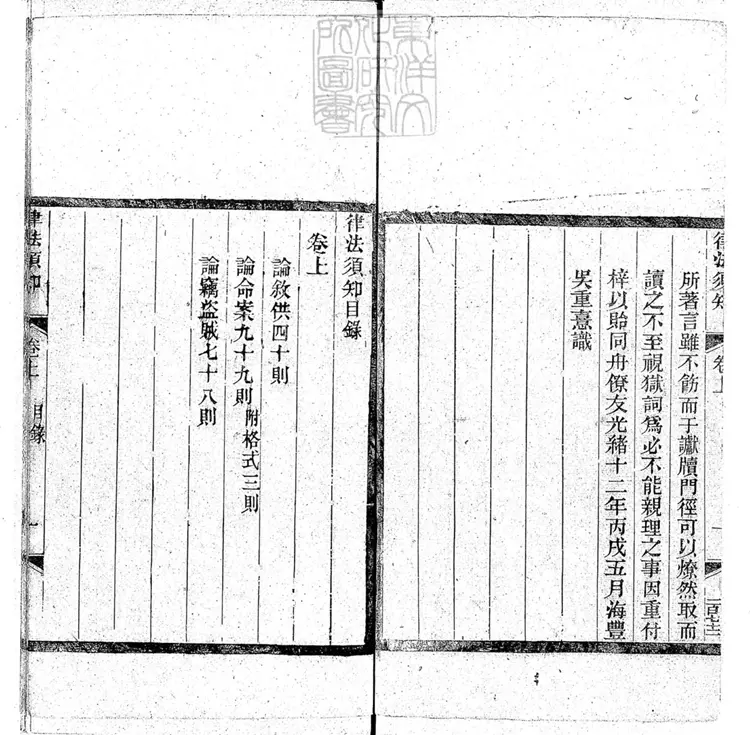 律法須知
卷上
一
所著言雖不飾而于讞牘門徑可以燎然取而
讀之不至視獄詞爲必不能親理之事因重付
梓以貽同舟僚友光緒十二年丙戌五月海豐
吳重憙識
東洋文
化研究
所圖書
律法須知目錄
卷上
論敘供四十則
論命案九十九則附格式三則
論竊盜賊七十八則
律法須知
卷上
目錄
一